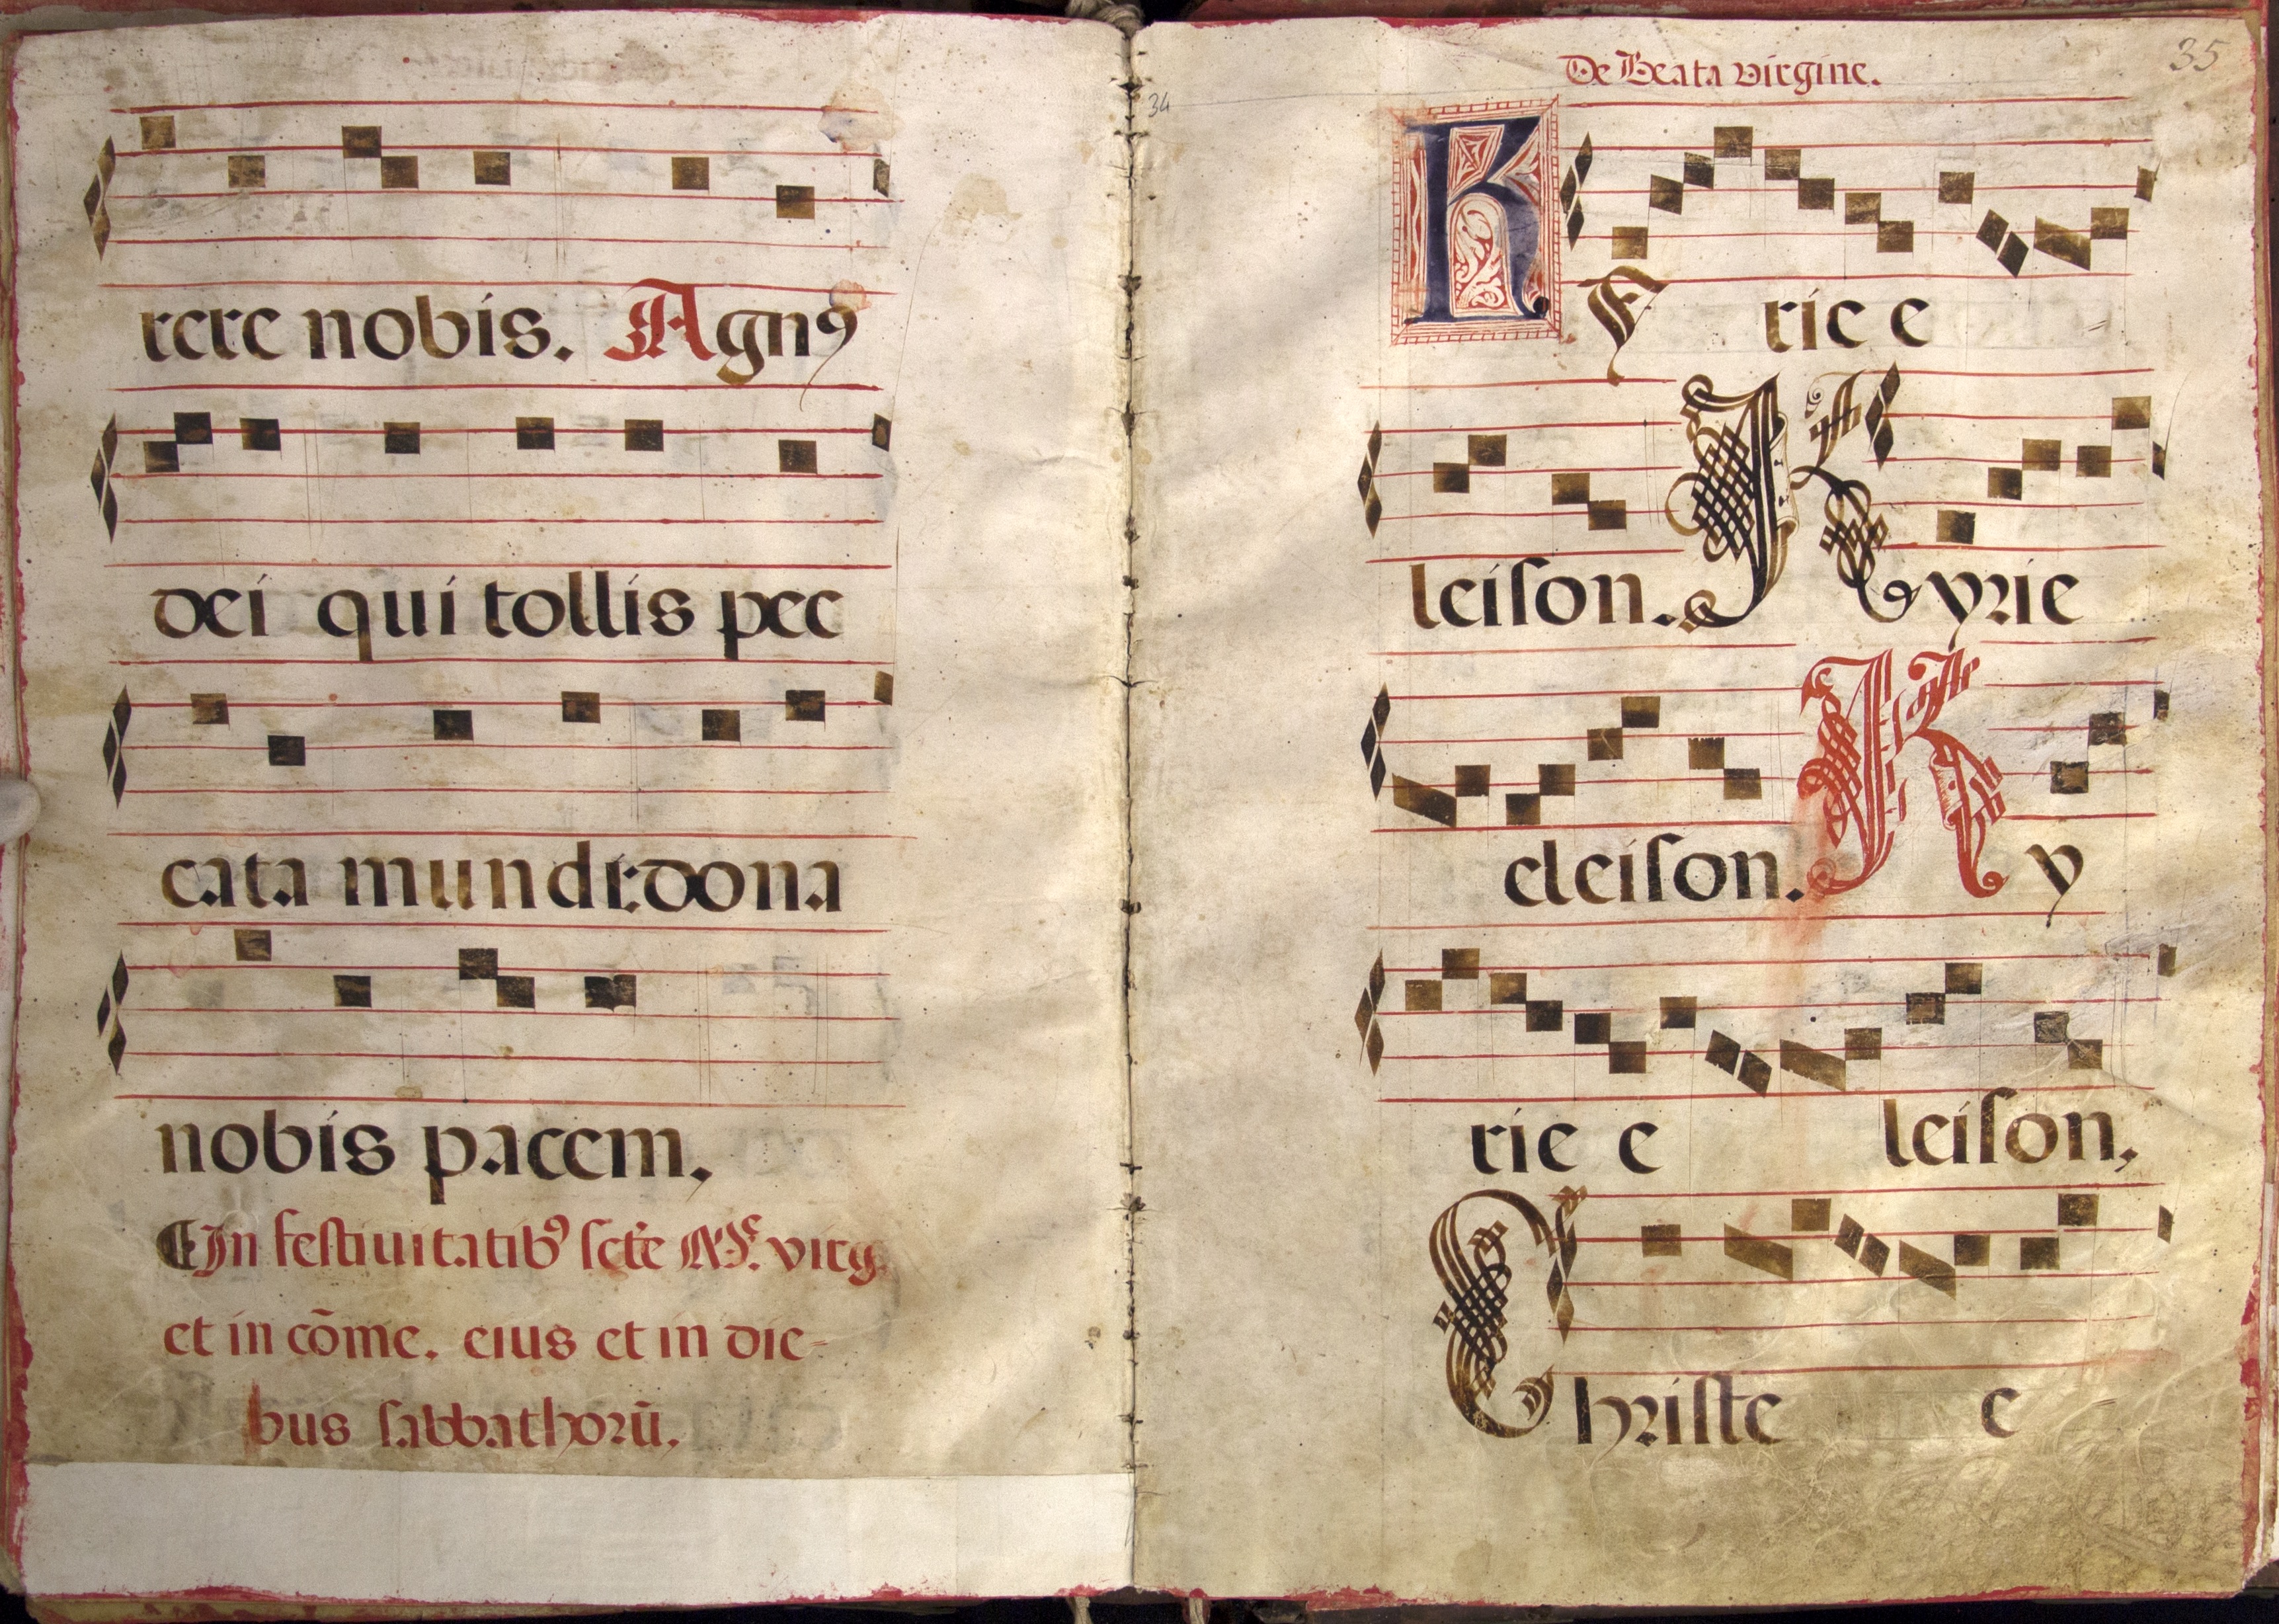 rere nobis. Agnꝰ
dei qui tollis pec
cata mundi:dona
nobis pacem.
¶In festiuitatibꝰ scte M. virg.
et in cōme. eius et in die=
bus sabbathorū.
34
35
De Beata virgine.
KY rie e
leison. Kyrie
eleison. Ky
rie e leison,
Christe e